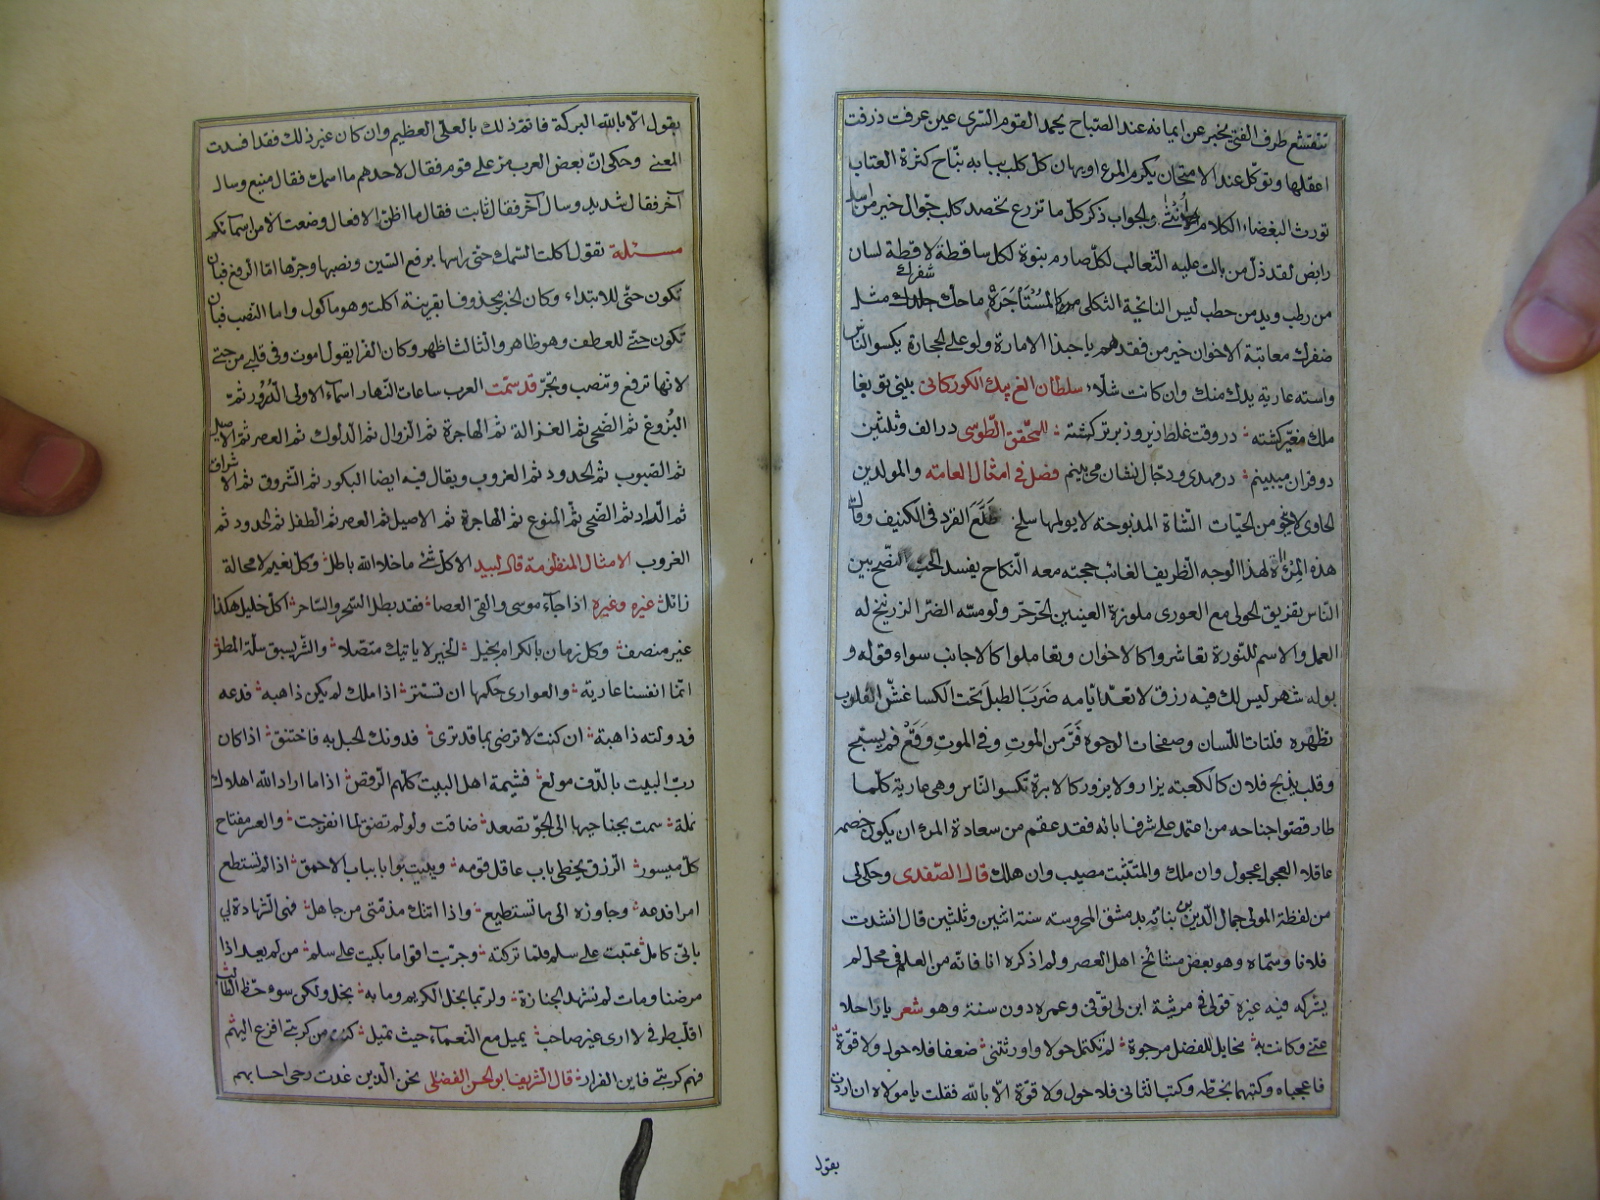 تنقشع طرف الفتى يخبر عن ايمانه عند الصباح يحمد القوم السرى عين عرفت ذرفت
اعقلها وتوكل عند الامتحان يكرم المرء او يهان كل كلب ببابه نباح كثرة العتاب
تورث البغضاء الكلام انثى والجواب ذكر كل ما تزرع تحصد كلب جوال خير من اسد
رابض لقد ذل من بالت عليه الثعالب لكل صارم نبوة لكل ساقطة لاقطة لسان
من رطب ويد من حطب ليس النائحة الثكلى كالمستأجرة ما حك جلدك مثل
ظفرك معاتبة الاخوان خير من فقدهم يا حبذا الامارة ولو على الحجارة يكسو الناس
واسته عارية يدك منك وان كانت شلاء سلطان الغ بيك الكوركانى بينى تو بغا
ملك مغير كشته در وقت غلط زير وزبر تركشته للمحقق الطوسى در الف وثلثين
دو قران ميبينم در مهدى ودجال نشان مى بينم فصل فى امثال العامة والمولدين
الحاوى لا ينجو من الحيات الشاة المذبوحة لا يولمها سلخ طلع القرد فى الكنيف وقال
هذه المرءاة لهذا الوجه الظريف الغائب حجته معه النكاح يفسد الحب النصح بين
الناس تفريق الحولى مع العورى ملوزة العينين الحر حر ولو مسه الضر الزرنيخ له
العمل والاسم للنورة تعاشروا كالاخوان وتعاملوا كالاجانب سواء قوله و
بوله شهر ليس لك فيه رزق لا تعد ايامه ضرب الطبل تحت الكسا غش القلوب
تظهره فلتات اللسان وصفحات الوجوه فر من الموت وفى الموت وقع فم يسبح
وقلب يذبح فلان كالكعبة يزار ولا يزور كالابرة تكسو الناس وهى عارية كلما
طار قصوا جناحه من اعتمد على شرف ابائه فقد عقهم من سعادة المرء ان يكون خصمه
عاقلا العجول عجول وان ملك والمتثبت مصيب وان هلك قال الصفدى وحكى لى
من لفظه المولى جمال الدين بن نباته بدمشق المحروسه سنة اثنين وثلثين قال انشدت
فلانا وسماه وهو بعض مشائخ اهل العصر ولم اذكره انا فانه من العلم فى محل لم
يشركه فيه غيره قولى فى مرثية ابن لى توفى وعمره دون سنة وهو شعر يا راحلا
عنى وكانت به مخايل للفضل مرجوة لم تكتمل حولا واورثتنى ضعفا فلا حول ولا قوة
فاعجباه وكتبهما بخطه وكتب الثانى فلا حول ولا قوة الا بالله فقلت يا مولانا ان اردت
بقول
بقول الا بالله البركة فاتم ذلك بالعلى العظيم وان كان غير ذلك فقد افسدت
المعنى وحكى ان بعض العرب مر على قوم فقال لاحدهم ما اسمك فقال منيع وسال
آخر فقال شديد وسال آخر فقال ثابت فقال ما اظن الاقفال وضعت الا من اسمائكم
مسئلة تقول اكلت السمك حتى راسها برفع السين ونصبها وجرها اما الرفع فبان
تكون حتى للابتداء وكان الخبر محذوفا بقرينة اكلت وهو ماكول واما النصب فبان
تكون حتى للعطف وهو ظاهر والثالث اظهر وكان الفرا يقول اموت وفى قلبى من حتى
لانها ترفع وتنصب وتجر قد سمت العرب ساعات النهار اسماء الاولى الذرور ثم
البزوغ ثم الضحى ثم الغزالة ثم الهاجرة ثم الزوال ثم الدلوك ثم العصر ثم الاصيل
ثم الصبوب ثم الحدود ثم الغروب ويقال فيه ايضا البكور ثم الشروق ثم الاشراق
ثم الراد ثم الضحى ثم المتوع ثم الهاجرة ثم الاصيل ثم العصر ثم الطفل ثم الحدود ثم
الغروب الامثال المنظومة قال لبيد الا كل شئ ما خلا الله باطل وكل نعيم لا محالة
زائل غيره وغيره اذا جاء موسى والقى العصا فقد بطل السحر والساحر اكل خليل هكذا
غير منصف وكل زمان بالكرام بخيل الخير لا ياتيك متصلا والشر يسبق سيله المطر
انما انفسنا عارية والعوارى حكمها ان تسترد اذا ملك لم يكن ذا هبه فدعه
فدولته ذاهبة ان كنت لا ترضى بما قد ترى فدونك الحبل به فاختنق اذا كان
رب البيت بالدف مولع فشيمة اهل البيت كلهم الرقص اذا ما اراد الله اهلاك
نملة سمت بجناحيها الى الجو تصعد ضاقت ولو لم تضق لما انفرجت والعسر مفتاح
كل ميسور الرزق يخطى باب عاقل قومه ويبيت بوابا بباب الاحمق اذا لم تستطع
امرا فدعه وجاوزه الى ما تستطيع واذا اتتك مذمتى من جاهل فهى الشهادة لى
بانى كامل عتبت على سلم فلما تركته وجربت اقواما بكيت على سلم من لم يعد اذا
مرضنا ومات لم نشهد الجنازة ولربما بخل الكريم وما به بخل ولكن سوء حظ الطالب
اقلب طرفى لا ارى غير صاحب يميل مع النعماء حيث تميل كنت من كربتى افزع اليهم
فهم كربتى فاين الفرار قال الشريف ابو الحسن الفضلى نحن الذين غدت رحى احسابهم